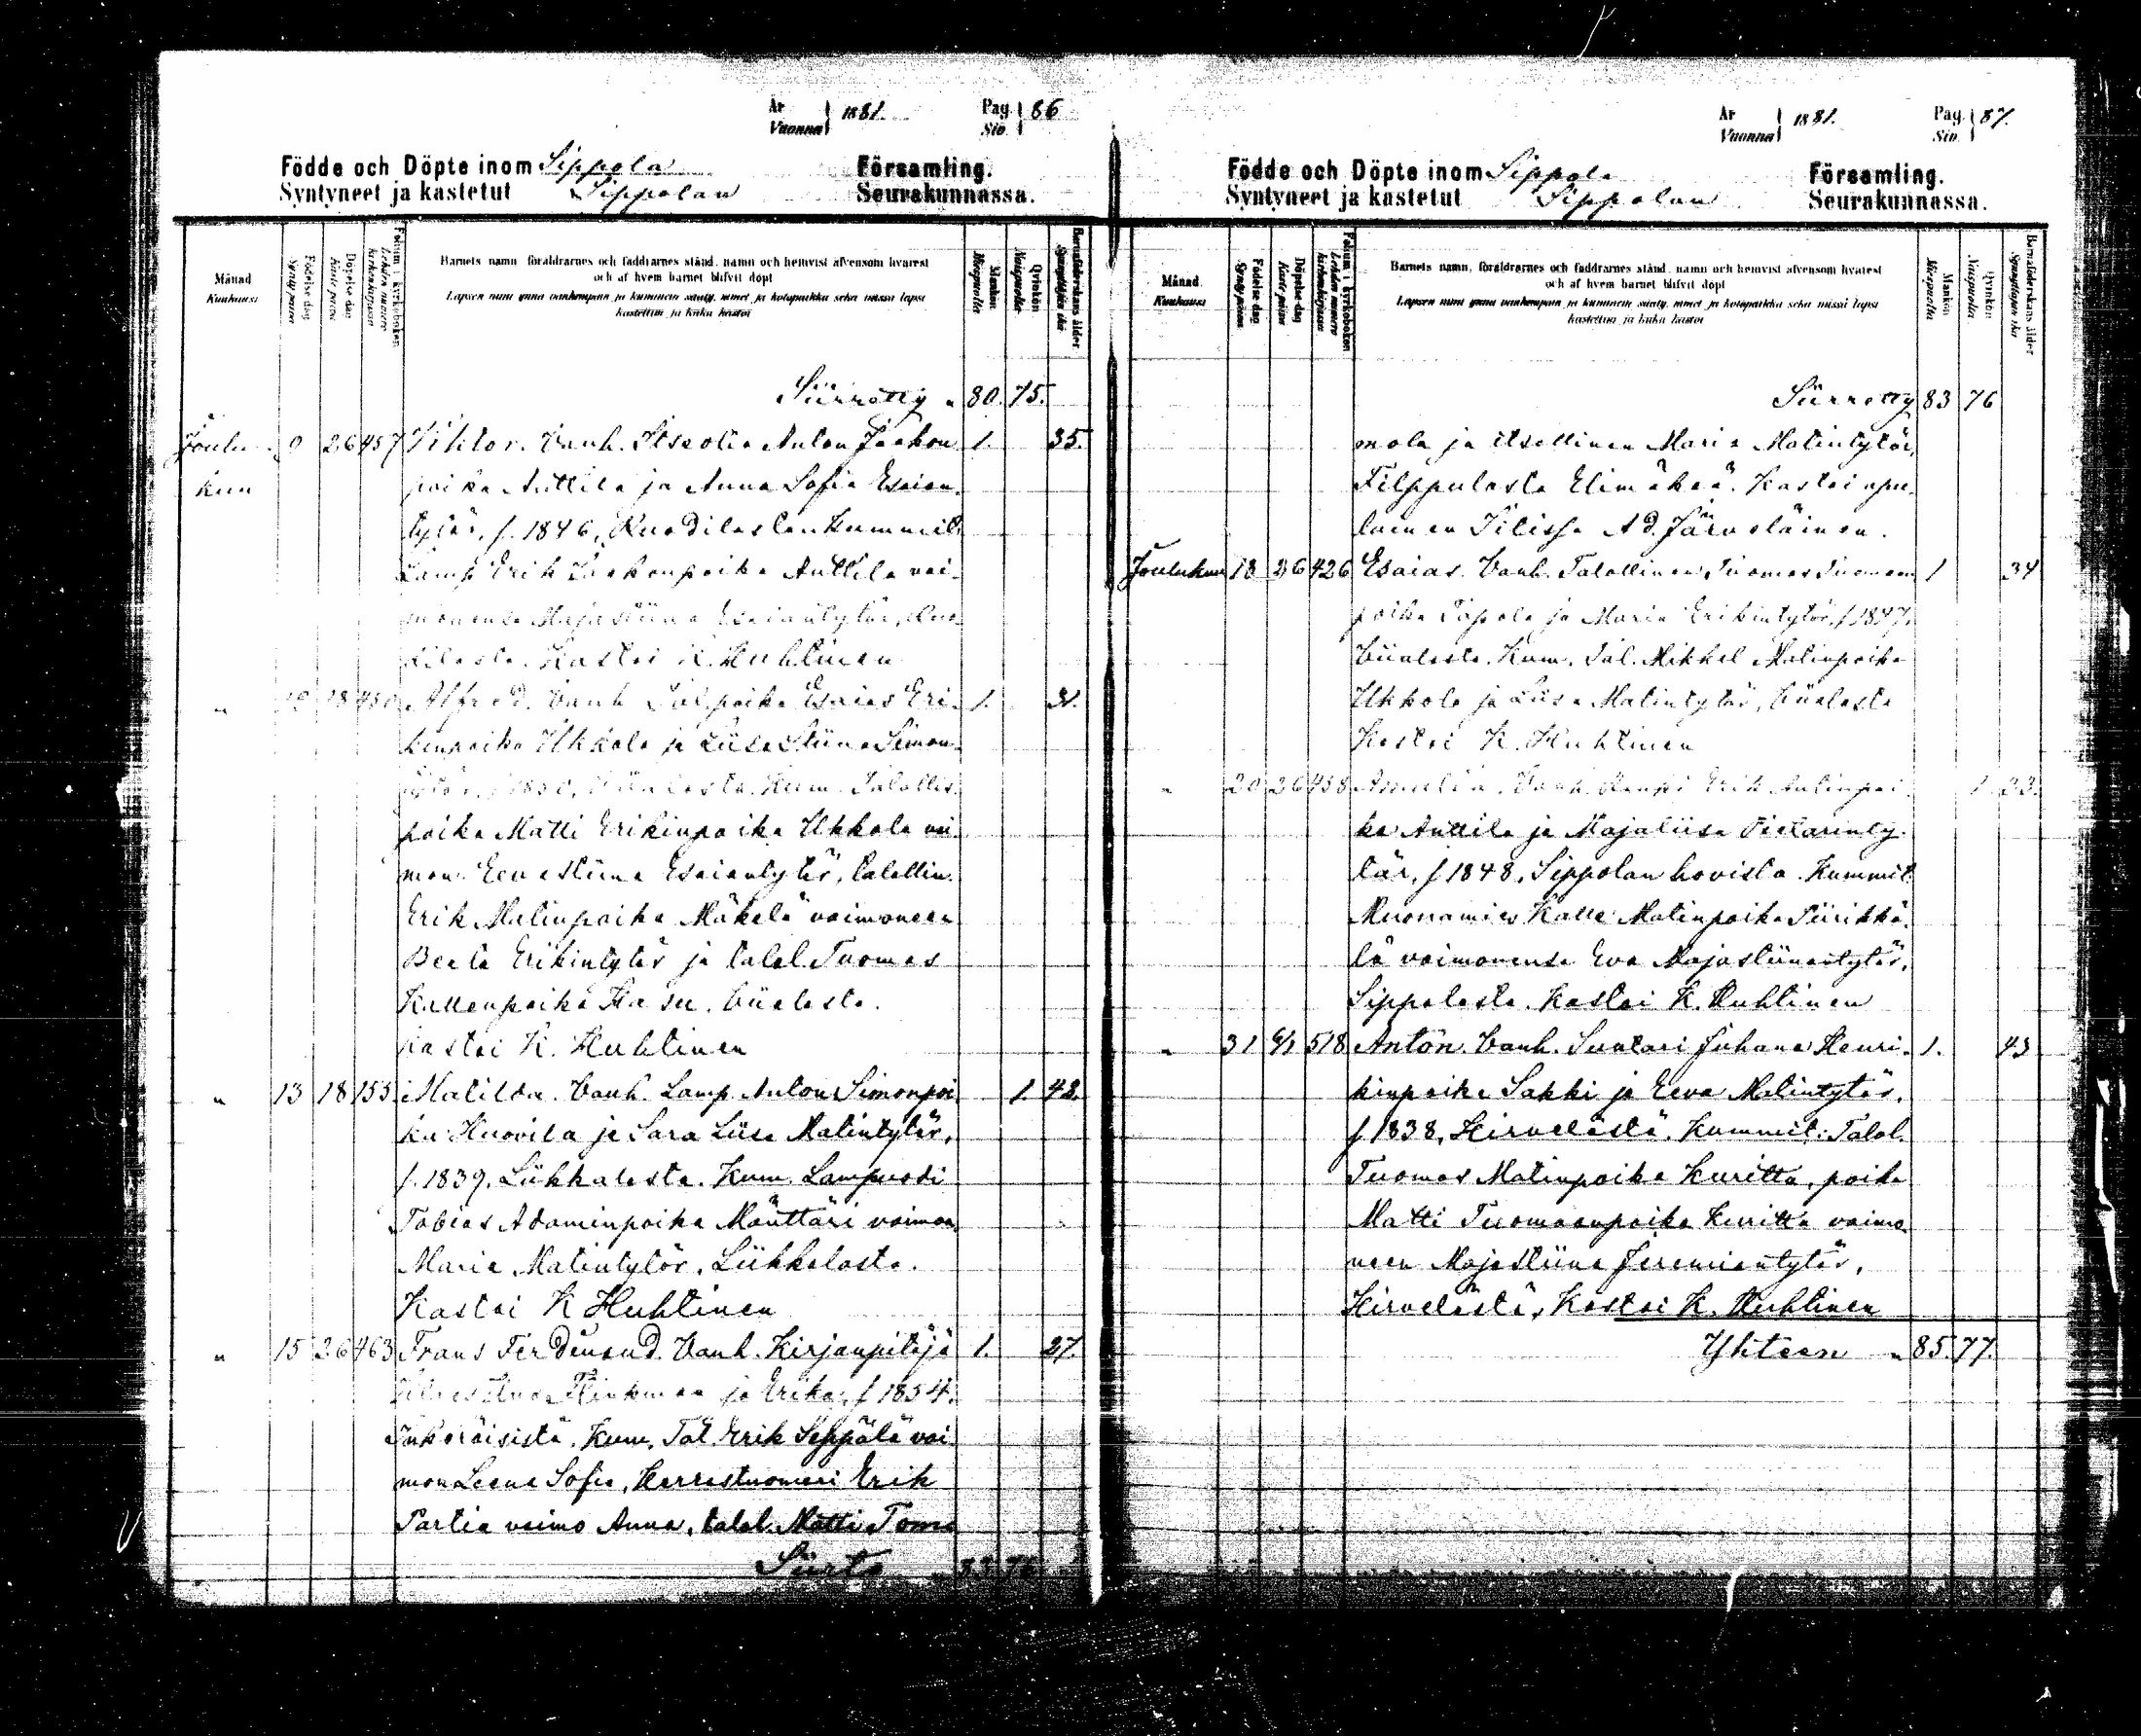 År Vuonna 1881. Pag. Siv. 86
Födde och Döpte inom Sippola Församling.
Syntyneet ja kastetut Sippolan Seurakunnassa.
Månad Kuukausi
Födelse dag Synty päivä
Döpelse dag Kaste päivä
Folium i kyrkoboken Lehden numero kirkonkirjassa
Barnets namn, föräldrarnes och faddrarnes stånd, namn och hemvist äfvensom hvarest
och af hvem barnet blifvit döpt
Lapsen nimi ynnä vanhempain ja kummein sääty, nimet ja kotopaikka sekä missä lapsi
kastettiin ja kuka kastoi
Mankön Miespuolia
Qvinkön Naispuolia
Barnaföderskans ålder Synnyttäjän ikä
Siirretty " 80. 75.
Joulu- 9 26 457 Viktor. Vanh. Itsellis Anton Jaakon 1. 35.
kuu poika Anttila ja Anna Sofia Esaian
tytär, s. 1846, Ruodilastan Kummit:
Lamp. Erik Jaakonpoika Anttila vai-
monensa Majastiina Esaiantytär, Ruo-
dilasta. Kastoi K. Huhtinen
" 18 Alfred. Vanh. Tal. poika Esaias Eri- 1. 31.
kinpoika Ukkola ja Liisa Stiina Simon-
tytär, Kum. Talollis.
poika Matti Erikinpoika Ukkola vai-
mon. Eevastiina Esaiantytär, talollin.
Erik Matinpoika Mäkelä vaimoneen
Beata Erikintytär ja talol. Tuomas
Kallenpoika Hasu, Viialasta.
Kastoi K. Huhtinen
" 13 18 153 Matilda. Vanh. Lamp. Anton Simonpoi- 1. 42.
ka Huovila ja Sara Liisa Matintytär,
s. 1839, Liikkalasta. Kum. Lampuodi
Tobias Adaminpoika Mänttäri vaimon.
Maria Matintytär, Liikkalasta.
Kastoi K Huhtinen
" 15 26 463 Frans Ferdinand. Vanh. Kirjanpitäjä 1. 27.
Flinkman ja Erika, s 1854.
Inkeroisista. Kum. Tal. Erik Seppälä vai-
mon Leena Sofia, Herrastuomari Erik
Partia vaimo Anna, talol. Matti Tom
Siirto 83 76
År Vuonna 1881. Pag. Siv. 87.
Födde och Döpte inom Sippola Församling.
Syntyneet ja kastetut Sippolan Seurakunnassa.
Månad Kuukausi
Födelse dag Synty päivä
Döpelse dag Kaste päivä
Folium i kyrkoboken Lehden numero kirkonkirjassa
Barnets namn, föräldrarnes och faddrarnes stånd, namn och hemvist äfvensom hvarest
och af hvem barnet blifvit döpt
Lapsen nimi ynnä vanhempain ja kummein sääty, nimet ja kotopaikka sekä missä lapsi
kastettiin ja kuka kastoi
Mankön Miespuolia
Qvinkön Naispuolia
Barnaföderskans ålder Synnyttäjän ikä
Siirretty 83 76
mola ja itsellinen Maria Matintytär,
Filppulasta Elimäkeä. Kastoi apu-
lainen Ad. Järveläinen.
Joulukuu 18 26 426 Esaias. Vanh. Talollinen Tuomas Tuomaan 1 34
poika Tapola ja Maria Erikintytär, s 1847,
Viialasta. Kum. Tal. Mikkel Matinpoika
Ukkola ja Liisa Matintytär, Viialasta
Kastoi K. Huhtinen
" 20 26 458 Amalia. Vanh. Erik Antinpoi- 1 33.
ka Anttila ja Majaliisa Pietarinty-
tär, s 1848, Sippolan hovista. Kummit
Muonamies Kalle Matinpoika Tiirikkä-
lä vaimonensa Eva Majastiinantytär,
Sippolasta. Kastoi K. Huhtinen
" 31 6/1 518 Anton. Vanh. Suutari Juhana Henri- 1. 43
kinpoika Sakki ja Eeva Matintytär,
s 1838, Hirvelästä. Kummit: Talol.
Tuomas Matinpoika Kuritta, poika
Matti Tuomaanpoika Kuritta vaimo-
neen Majastiina Jeremiantytär,
Hirvelästä, Kastoi K. Huhtinen
Yhteen " 85. 77.